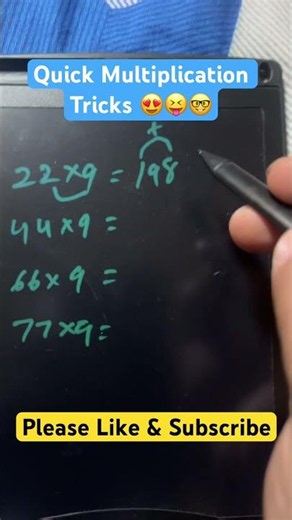 Quick Multiplication
Tricks 😍😝🤓
22 × 9 = 198
44 × 9 =
66 × 9 =
77 × 9 =
Please Like & Subscribe